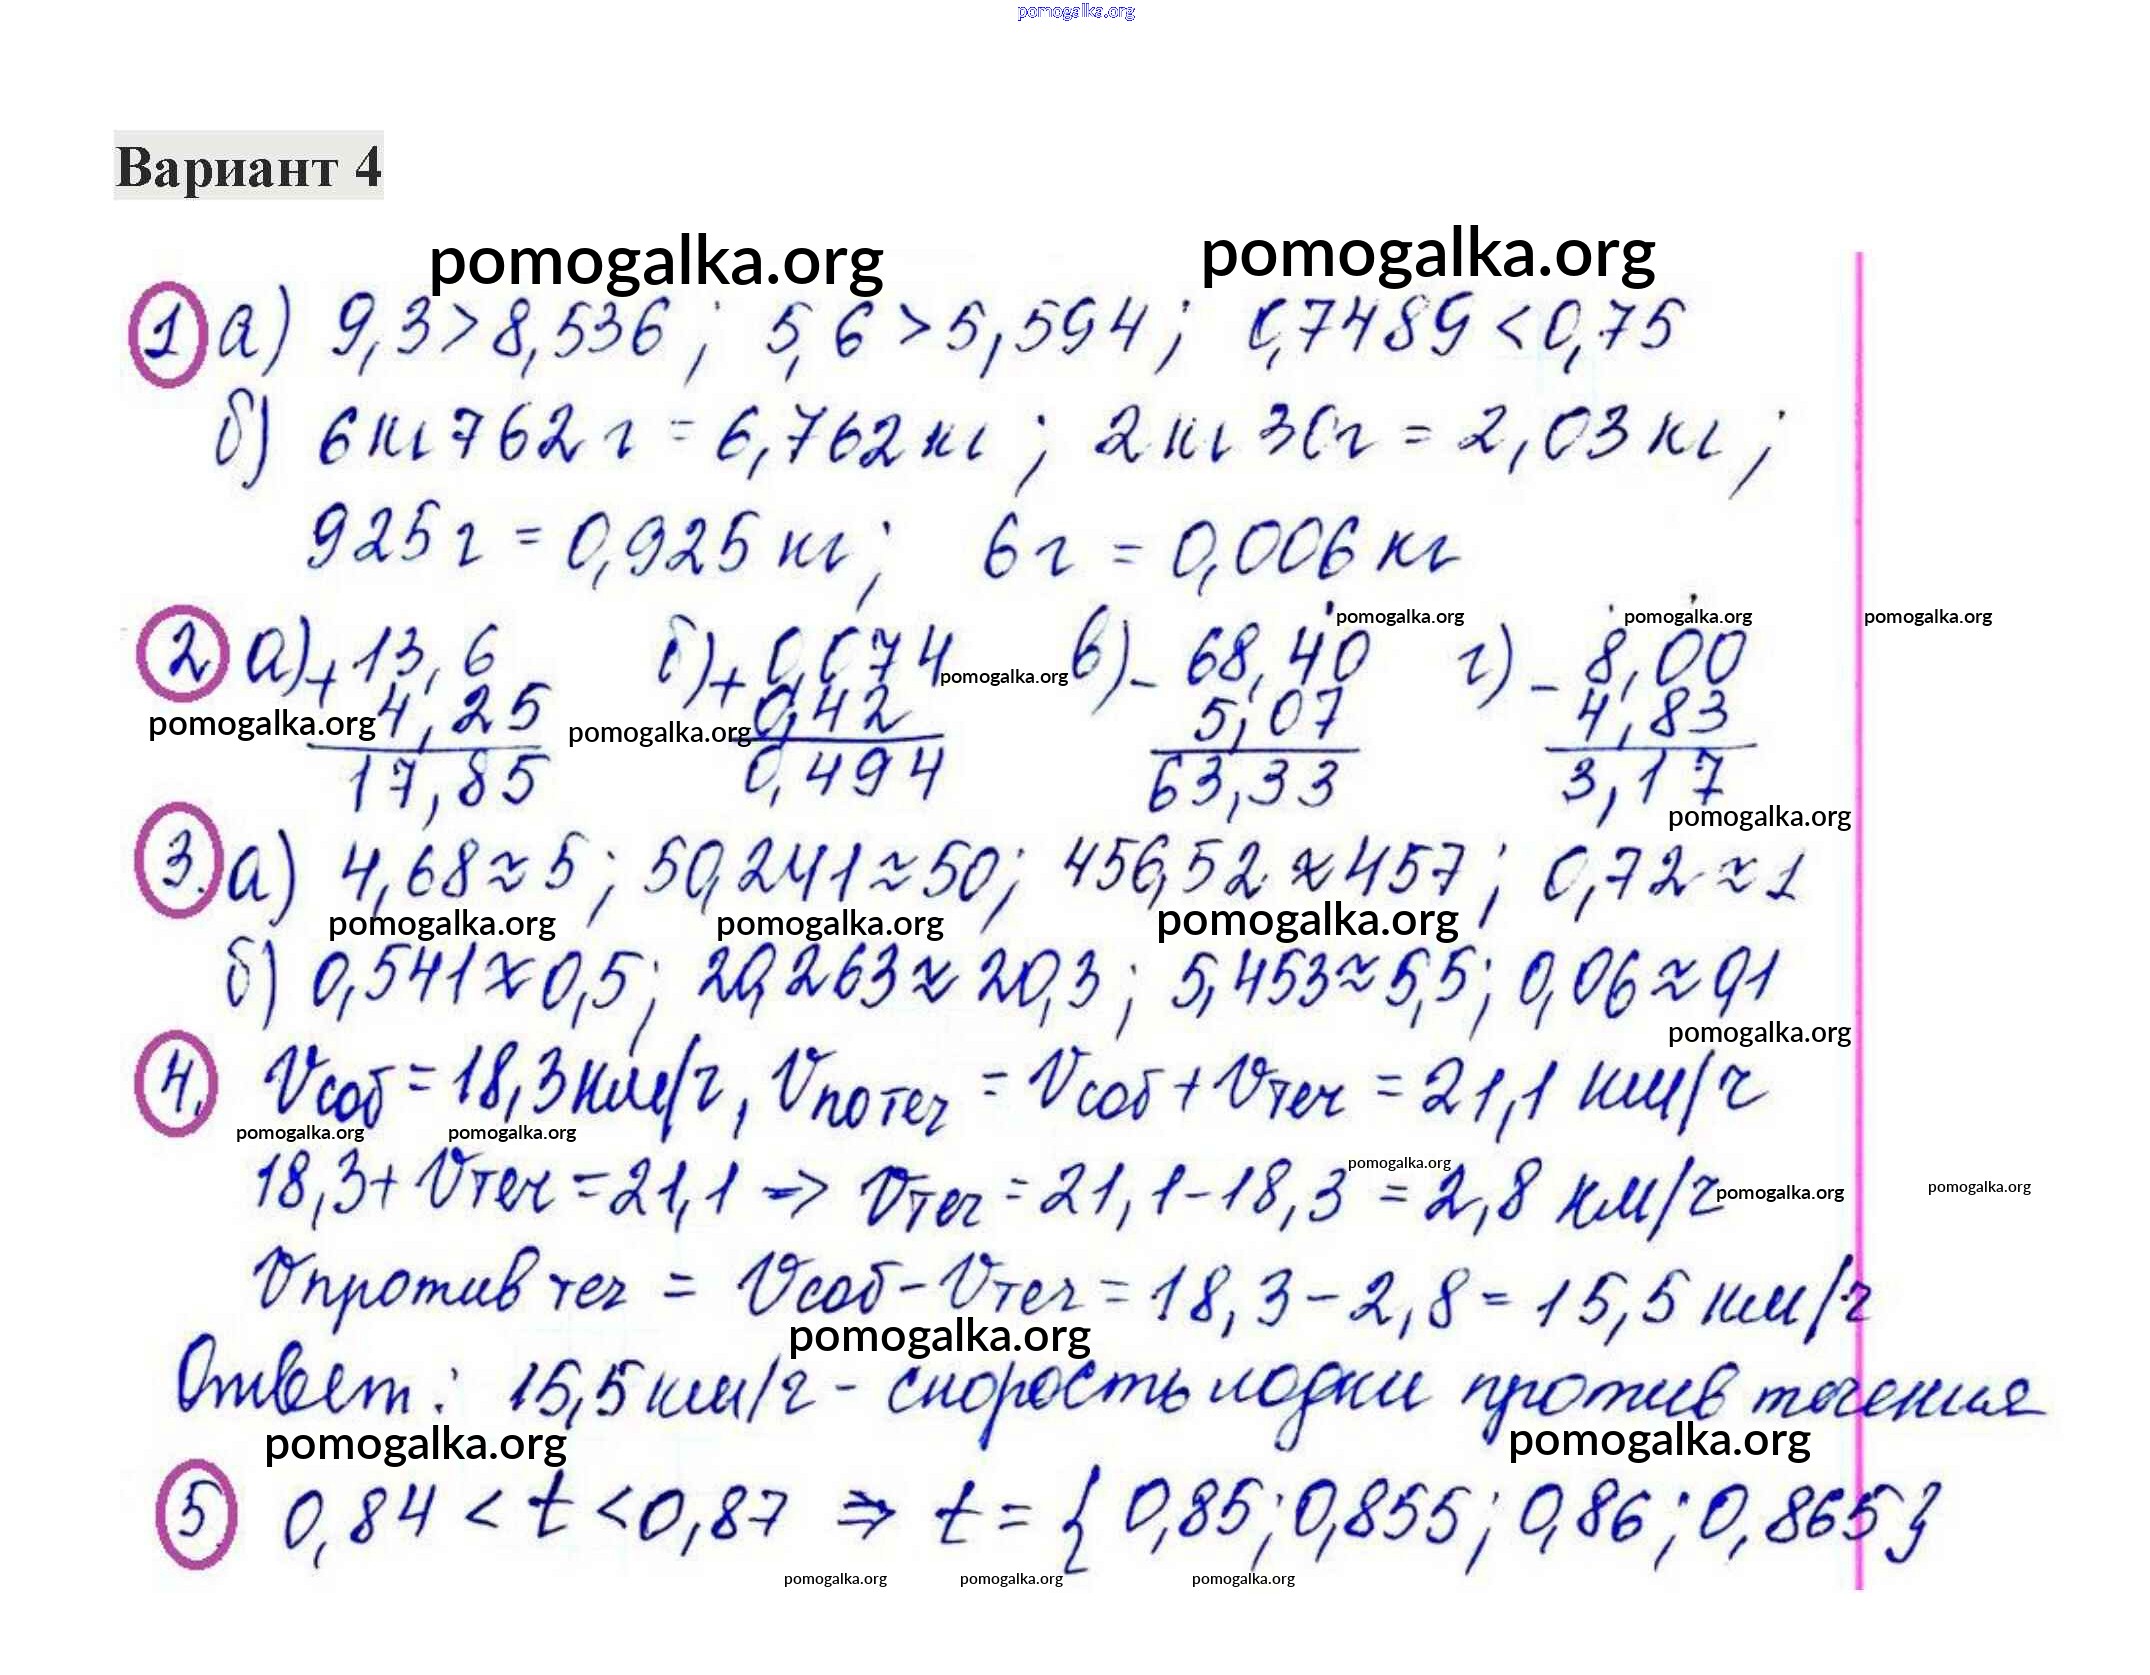 pomogalka.org
Вариант 4
pomogalka.org pomogalka.org
1 а) 9,3 > 8,536 ; 5,6 > 5,594 ; 0,7489 < 0,75
б) 6 кг 762 г = 6,762 кг ; 2 кг 30 г = 2,03 кг ;
925 г = 0,925 кг ; 6 г = 0,006 кг
pomogalka.org pomogalka.org pomogalka.org
2 а) + 13,6 б) + 0,074 в) - 68,40 г) - 8,00
pomogalka.org
4,25 0,42 5,07 4,83
pomogalka.org pomogalka.org
17,85 0,494 63,33 3,17
pomogalka.org
3. а) 4,68 ≈ 5 ; 50,241 ≈ 50 ; 456,52 ≈ 457 ; 0,72 ≈ 1
pomogalka.org pomogalka.org pomogalka.org
б) 0,541 ≈ 0,5 ; 20,263 ≈ 20,3 ; 5,453 ≈ 5,5 ; 0,06 ≈ 0,1
pomogalka.org
4. Vсоб = 18,3 км/ч , Vпо теч = Vсоб + Vтеч = 21,1 км/ч
pomogalka.org pomogalka.org
18,3 + Vтеч = 21,1 => Vтеч = 21,1 - 18,3 = 2,8 км/ч
pomogalka.org pomogalka.org pomogalka.org
Vпротив теч = Vсоб - Vтеч = 18,3 - 2,8 = 15,5 км/ч
pomogalka.org
Ответ : 15,5 км/ч - скорость лодки против течения
pomogalka.org pomogalka.org
5 0,84 < t < 0,87 => t = { 0,85 ; 0,855 ; 0,86 ; 0,865 }
pomogalka.org pomogalka.org pomogalka.org